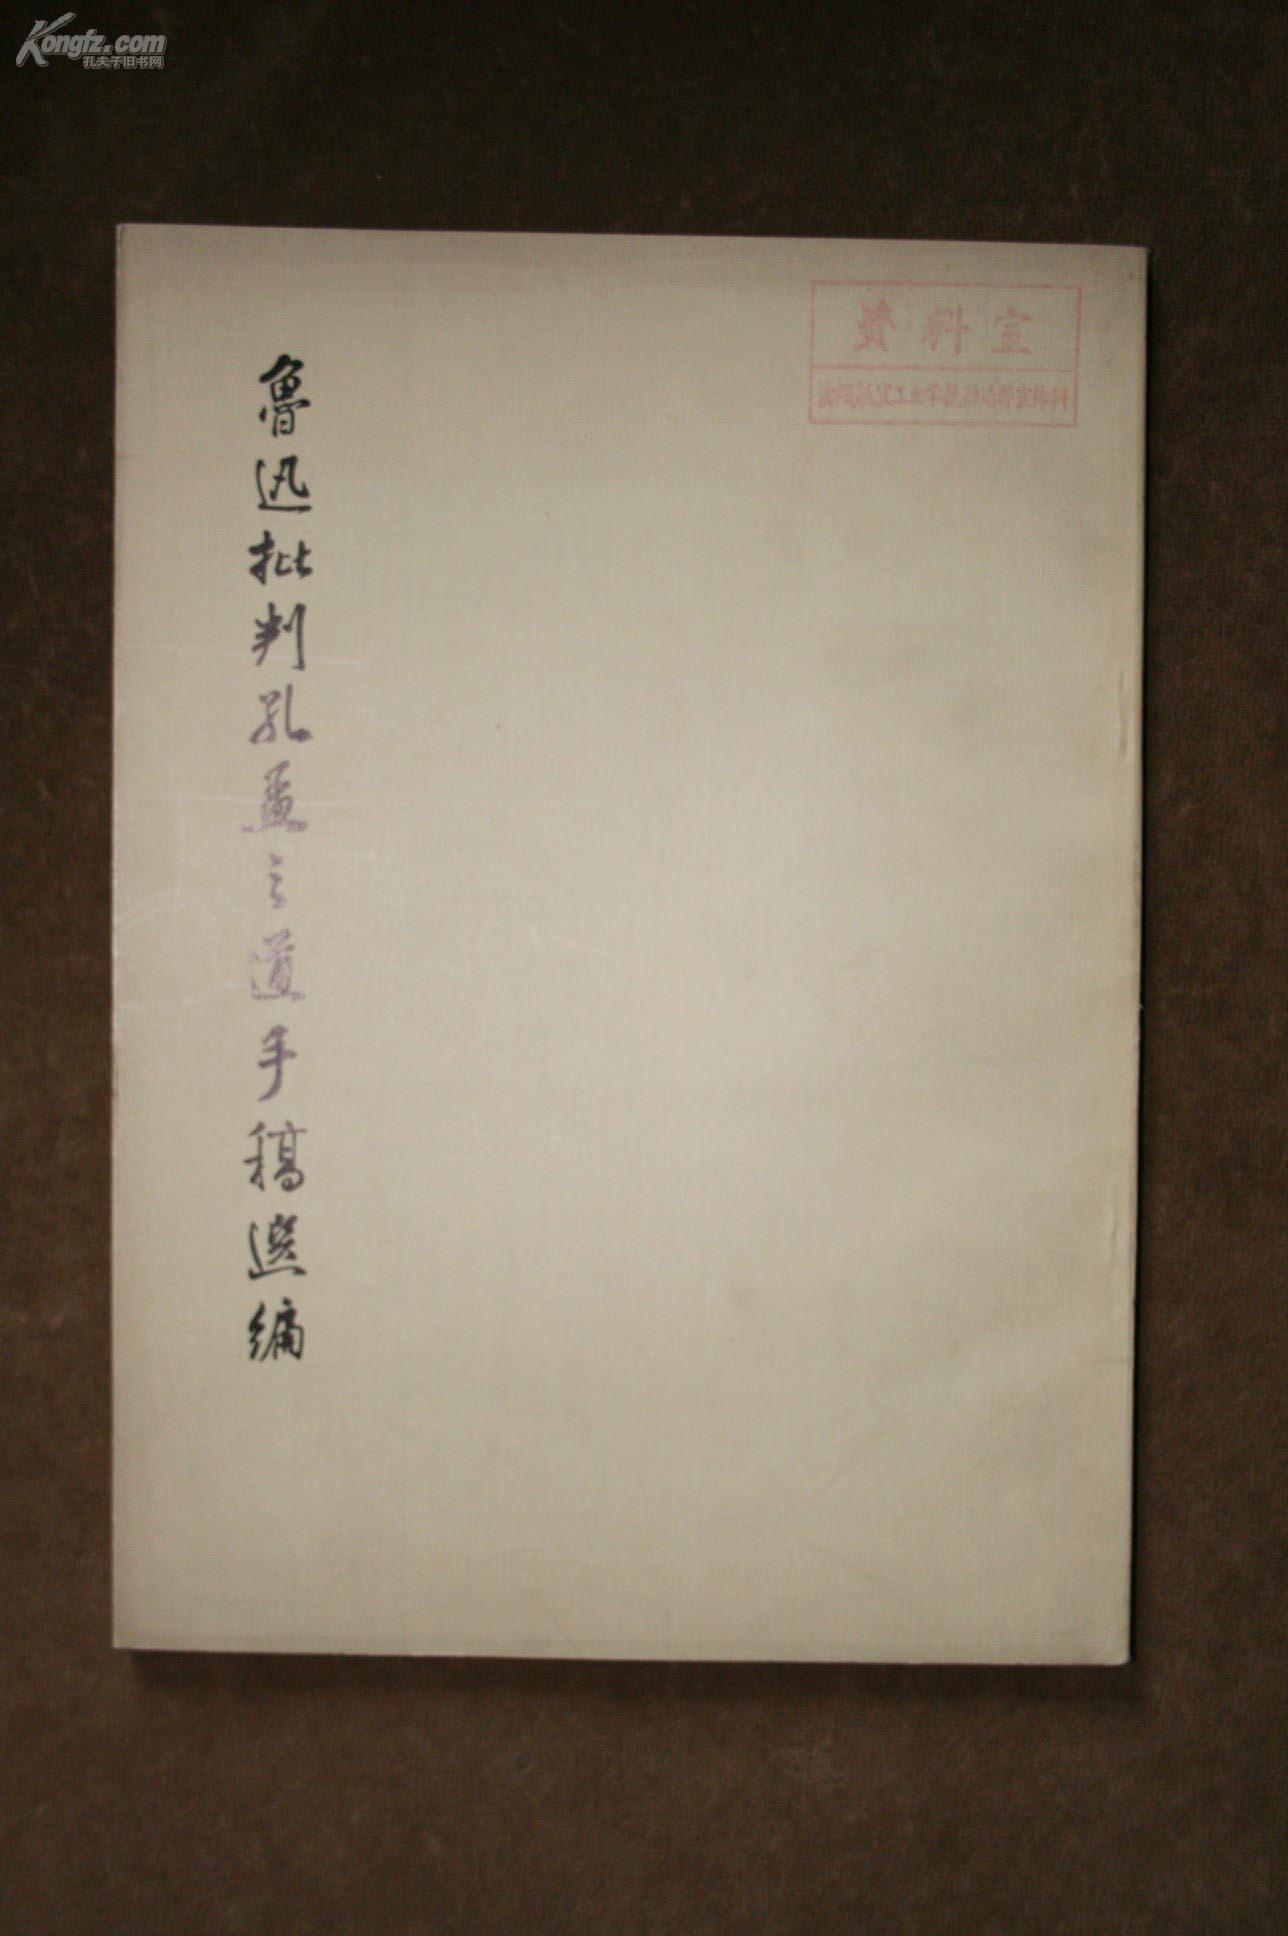 Kongfz.com
孔夫子旧书网
資料室
魯迅批判孔孟之道手稿選編